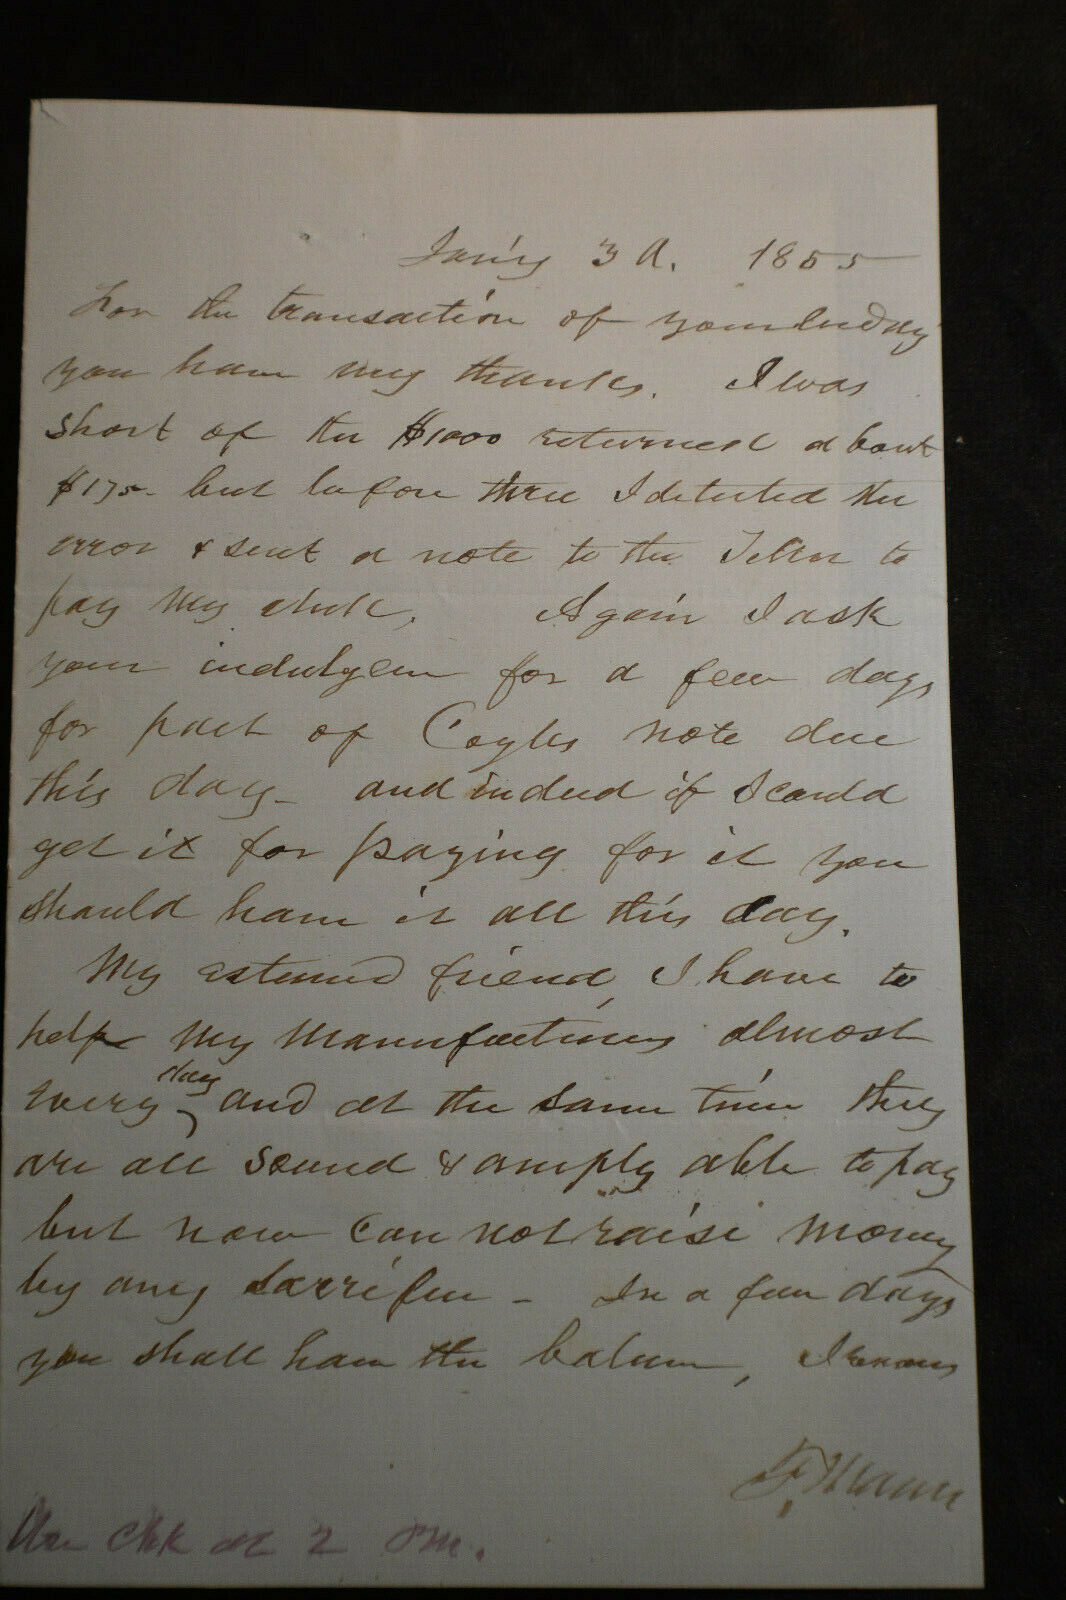 Jan'y 3d. 1855
For the transaction of yesterday
you have my thanks. I was
short of the $1000 returned about
$175- but before three I detected the
error & sent a note to the Teller to
pay my check. Again I ask
your indulgence for a few days
for part of Coyles note due
this day - and indeed if I could
get it for paying for it you
should have it all this day.
My esteemed friend, I have to
help my manufacturers almost
every day and at the same time they
are all sound & amply able to pay
but now can not raise money
by any sacrifice - In a few days
you shall have the balance, 
Mann
Chk at 2 PM.